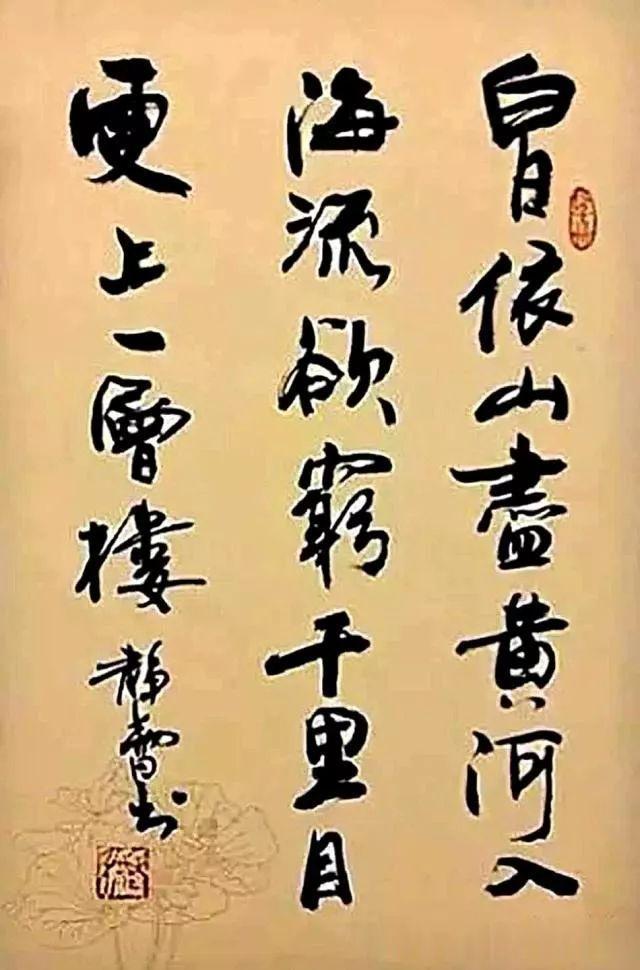 白日依山盡黄河入
海流欲窮千里目
更上一層樓
書